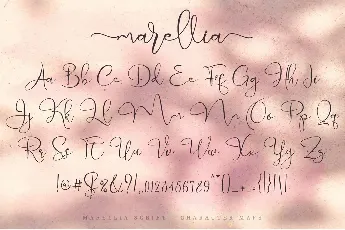 marellia
Aa Bb Cc Dd Ee Ff Gg Hh Ii
Jj Kk Ll Mm Nn Oo Pp Qq
Rr Ss Tt Uu Vv Ww Xx Yy Zz
MARELLIA SCRIPT CHARACTER MAPS